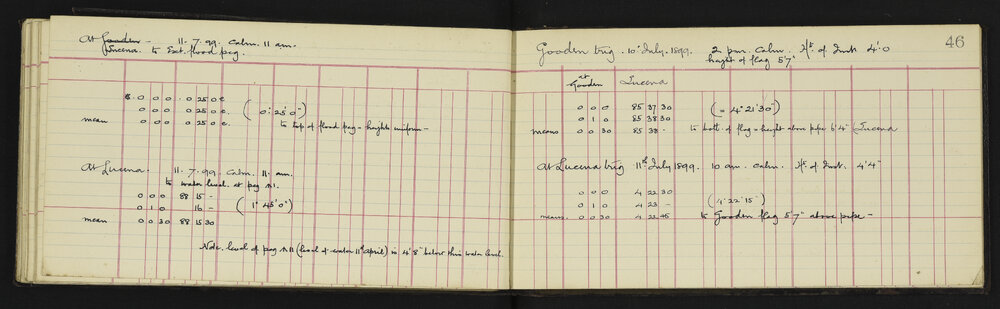 At Gooden - 11.7.99. Calm. 11 am.
Lucena. to Ext. flood peg.
0 0 0 0 25 0 e.
0 0 0 0 25 0 e. ( 0° 25' 0" )
mean 0 0 0 0 25 0 e. to top of flood peg - heights uniform -
At Lucena. 11.7.99. Calm. 11. am.
to water level. at peg
0 0 0 88 15 -
0 1 0 16 - ( 1° 45' 0" )
mean 0 0 30 88 15 30
Note. level of peg (level of water 11th april) is 4' 8" below this water level.
46
Gooden trig. 10th July. 1899. 2 pm. Calm. Ht. of Inst 4'.0
height of flag 5'7"
at
Gooden Lucena
0 0 0 85 37 30 (= 4° 21' 30")
0 1 0 85 38 30
means 0 0 30 85 38 - to bott. of flag = height above pipe 6' 4" (Lucena
At Lucena trig 11th July 1899. 10 am. Calm. Ht. of Inst. 4' 4"
0 0 0 4 22 30
0 1 0 4 23 - (4° 22' 15")
means. 0 0 30 4 22 45 to Gooden flag 5' 7" above pipe -